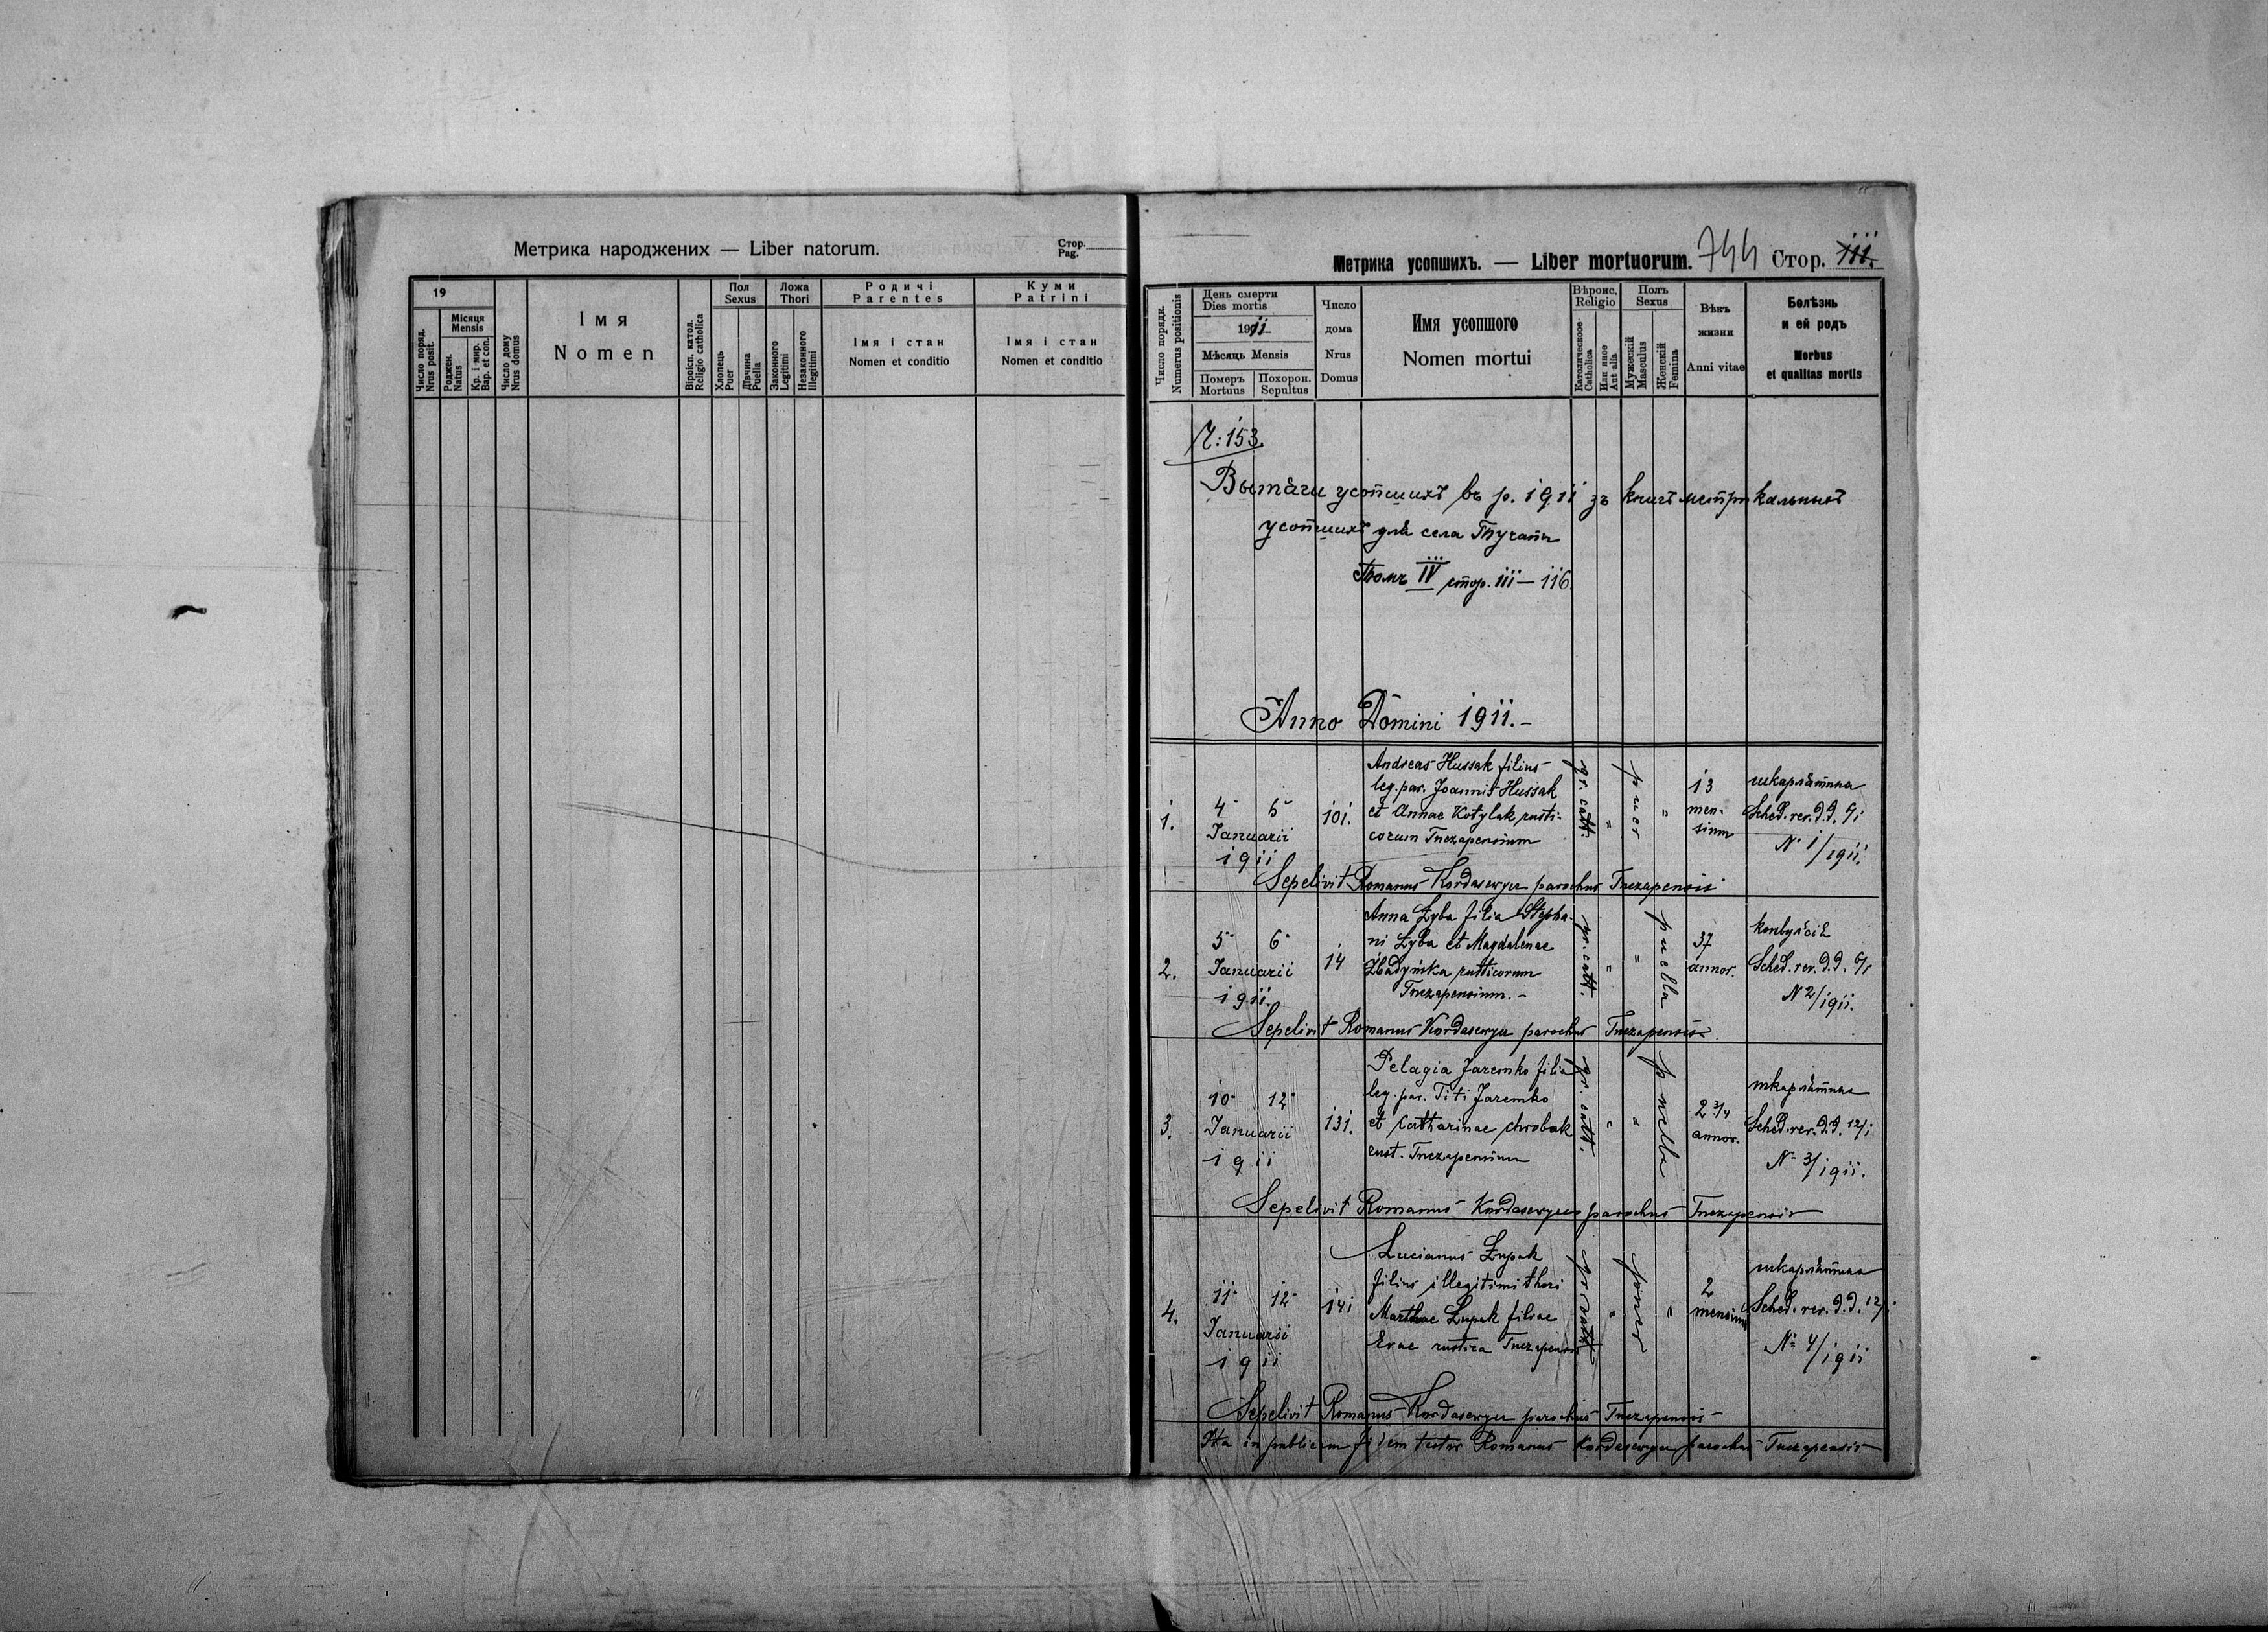 Метрика народжених — Liber natorum.
Стор.
Pag.
19
Число поряд.
Nrus posit.
Місяця
Mensis
Роджен.
Natus
Кр. і мир.
Bap. et con.
Число дому
Nrus domus
Імя
Nomen
Віроісп. катол.
Religio catholica
Пол
Sexus
Хлопець
Puer
Дївчина
Puella
Ложа
Thori
Законного
Legitimi
Незаконного
Illegitimi
Родичі
Parentes
Імя і стан
Nomen et conditio
Куми
Patrini
Імя і стан
Nomen et conditio
Метрика усопшихъ. — Liber mortuorum. 744 Стор. 111.
Число порядк.
Numerus positionis
День смерти
Dies mortis
1911
Мѣсяць Mensis
Померъ
Mortuus
Похорон.
Sepultus
Число
дома
Nrus
Domus
Имя усопшого
Nomen mortui
Вѣроис.
Religio
Католическое
Catholica
Или иное
Aut alia
Полъ
Sexus
Мужескій
Masculus
Женскій
Femina
Вѣкъ
жизни
Anni vitae
Болѣзнь
и ей родъ
Morbus
et qualitas mortis
Ч: 153.
усопшихъ въ р. 1911 зъ книгъ метрикальныхъ
усопшихъ для села
Томъ IV стор. 111 — 116.
Anno Domini 1911. -
1.
4 5
Januarii
1911
101.
Andreas Hussak filius
leg. par. Joannis Hussak
et Annae Kotylak rusti-
corum Tnezapensium
gr. cath.
"
puer
"
13
men-
sium
шкарлятина
Sched. rev. d.d.
N 1/1911.
Sepelivit Romanus parochus Tnezapensis
2.
5 6
Januarii
1911.
14
Anna Zyba filia Stepha-
ni Zyba et Magdalenae
rusticorum
Tnezapensium. -
gr. cath.
"
"
puella
37
annor.
Sched. rev. d.d.
N 2/1911.
Sepelivit Romanus parochus Tnezapensis
3.
10 12
Januarii
1911
131.
Pelagia Jaremko filia
leg. par. Titi Jaremko
et Catharinae Chrobak
rust. Tnezapensium
gr. cath.
"
"
puella
2 3/4
annor.
шкарлятина
Sched. rev. d.d. 12/1
N 3/1911.
Sepelivit Romanus parochus Tnezapensis
4.
11 12
Januarii
1911
141
Lucianus Zupak
filius illegitimi thori
Marthae Zupak filiae
Evae rustica Tnezapensis
gr. cath.
"
puer
"
2
mensium
шкарлятина
Sched. rev. d.d. 12/1
N 4/1911
Sepelivit Romanus parochus Tnezapensis
Ita in publicam fidem testor Romanus parochus Tnezapensis